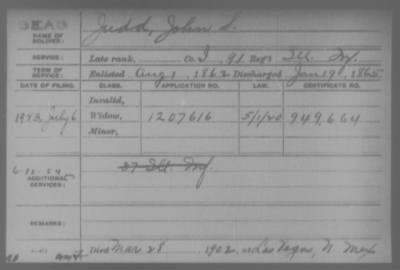 DEAD
NAME OF SOLDIER: Judd, John S.
SERVICE: Late rank, Co. I, 91 Reg't Ill. Inf.
TERM OF SERVICE: Enlisted Aug 1, 1862 Discharged Jan 19, 1865
DATE OF FILING. CLASS. APPLICATION NO. LAW. CERTIFICATE NO.
Invalid,
1923, July 6 Widow, 1207616 5/1/20 949,664
Minor,
ADDITIONAL SERVICES: 27 Ill. Inf.
REMARKS:
Died Mar 28, 1902, at Las Vegas, N. Mex